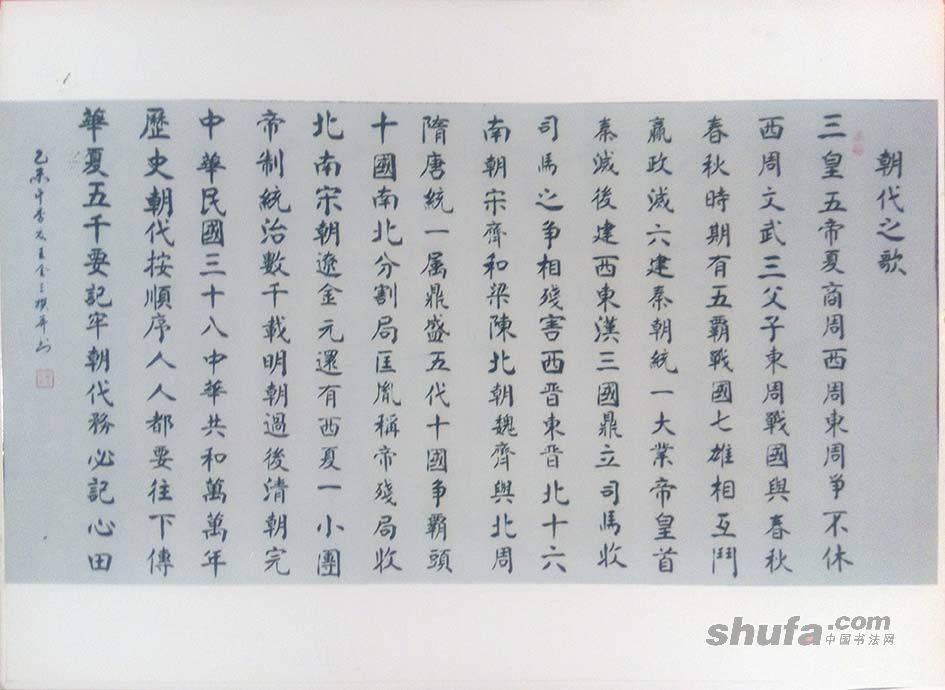 朝代之歌
三皇五帝夏商周西周東周爭不休
西周文武三父子東周戰國與春秋
春秋時期有五霸戰國七雄相互鬥
嬴政滅六建秦朝統一大業帝皇首
秦滅後建西東漢三國鼎立司馬收
司馬之爭相殘害西晋東晋北十六
南朝宋齊和梁陳北朝魏齊與北周
隋唐統一屬鼎盛五代十國爭霸頭
十國南北分割局匡胤稱帝殘局收
北南宋朝遼金元還有西夏一小團
帝制統治數千載明朝過後清朝完
中華民國三十八中華共和萬萬年
歷史朝代按順序人人都要往下傳
華夏五千要記牢朝代務必記心田
乙未中
shufa.com
中国书法网